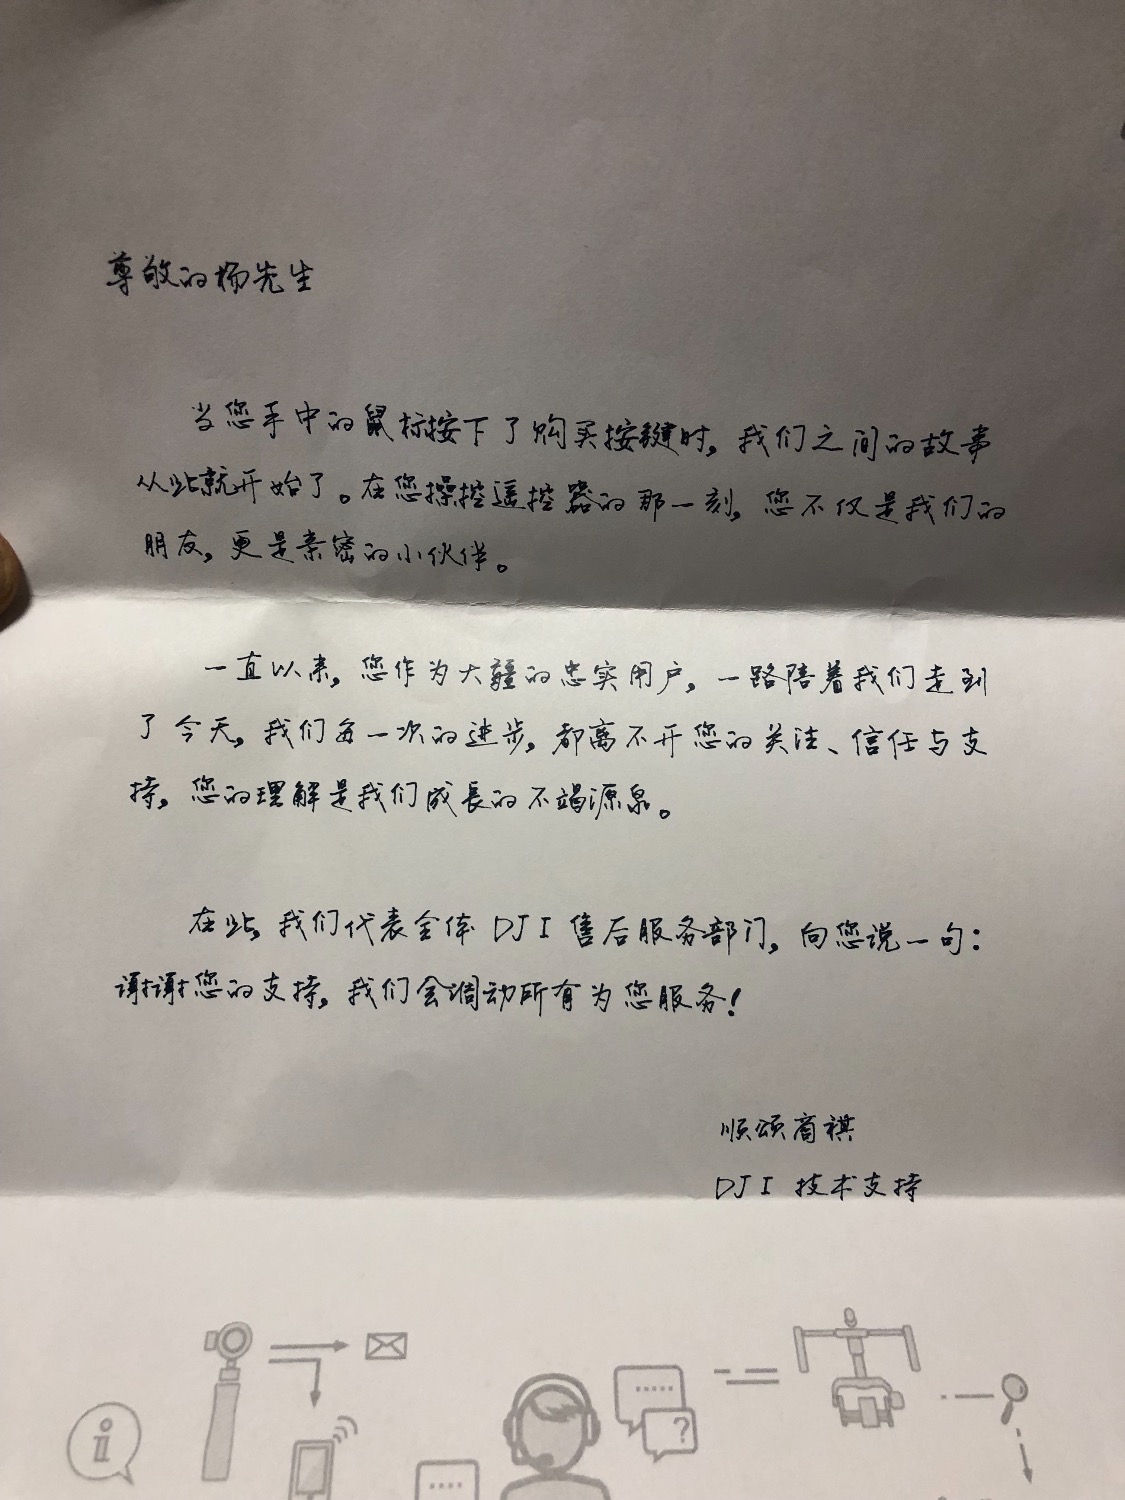 尊敬的杨先生
当您手中的鼠标按下了购买按键时,我们之间的故事
从此就开始了。在您操控遥控器的那一刻,您不仅是我们的
朋友,更是亲密的小伙伴。
一直以来,您作为大疆的忠实用户,一路陪着我们走到
了今天,我们每一次的进步,都离不开您的关注、信任与支
持,您的理解是我们成长的不竭源泉。
在此,我们代表全体 DJI 售后服务部门,向您说一句:
谢谢您的支持,我们会调动所有为您服务!
顺颂商祺
DJI 技术支持